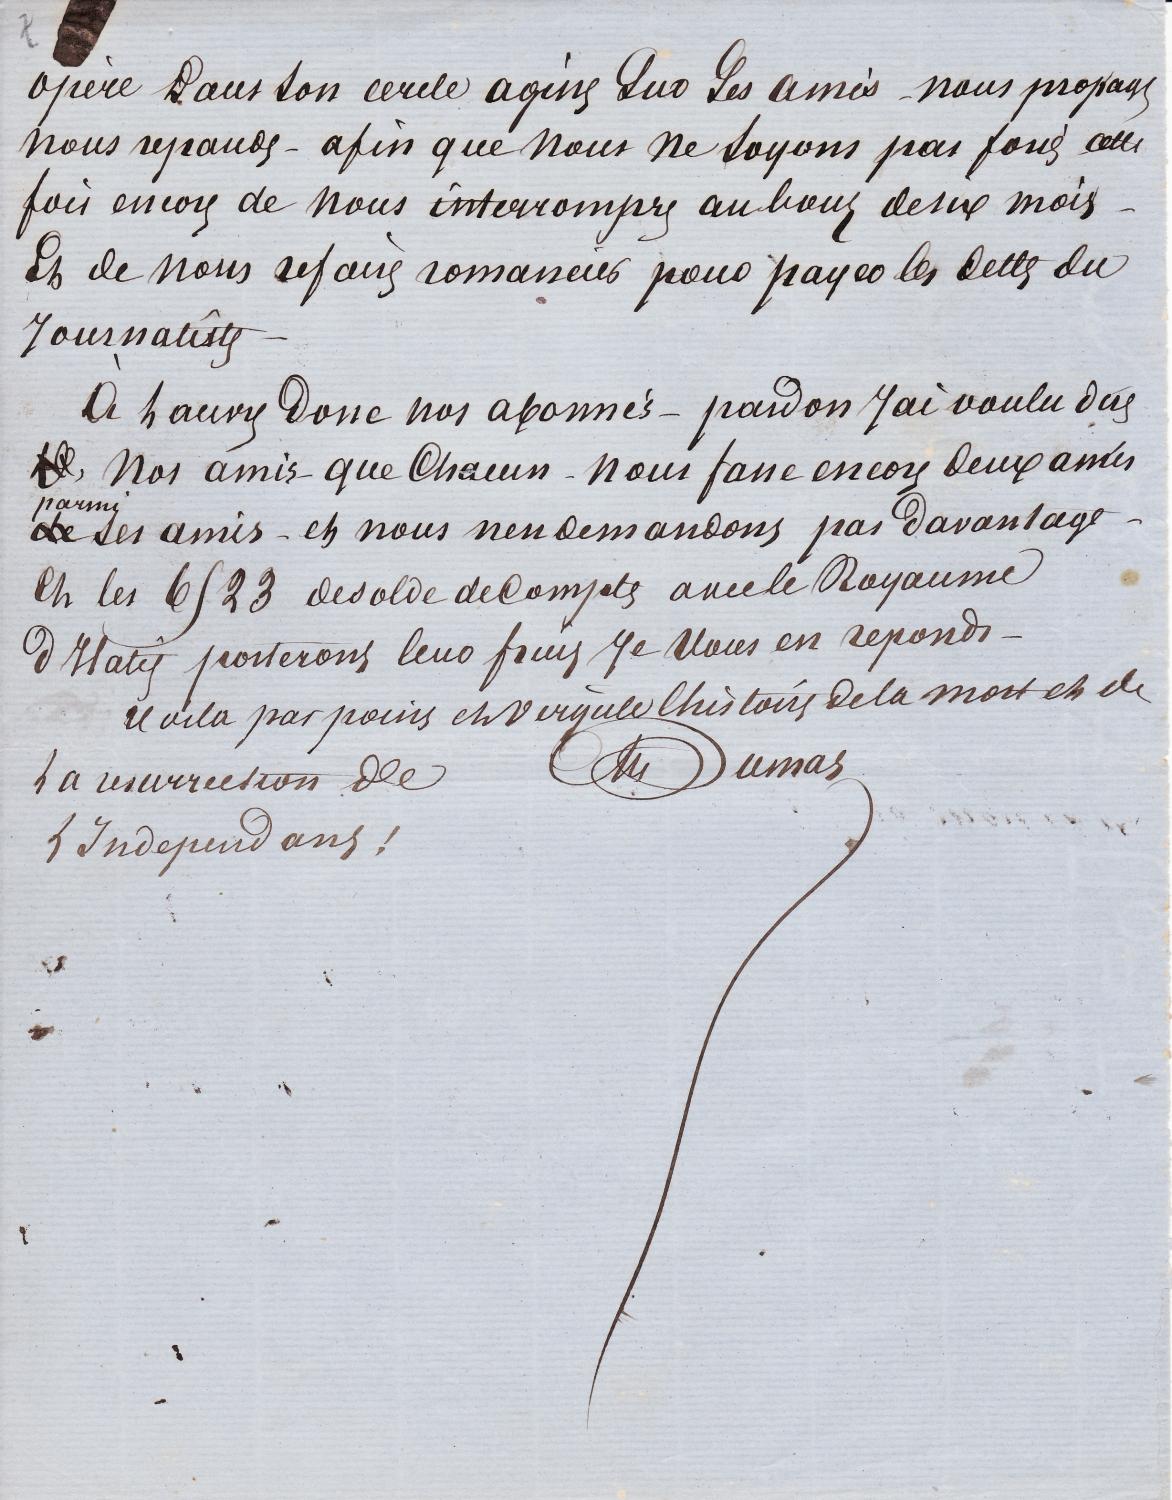 opère dans son cercle agisse sur ses amis – nous propage
nous repande – afin que nous ne soyons pas forcé cette
fois encore de nous interrompre au bout de six mois –
Et de nous refaire romancier pour payer les dettes du
Journaliste –
À l'œuvre donc nos abonnés – pardon J'ai voulu dire
nos amis – que chacun – nous fasse encore deux amis
parmi
de ses amis – et nous nen demandons pas davantage –
Et les 6f 23 de solde de compte avec le Royaume
d'Italie porterons leur fruit Je vous en reponds –
Voila par point et virgule l'histoire de la mort et de
la resurrection de
Al Dumas
L'Independant!